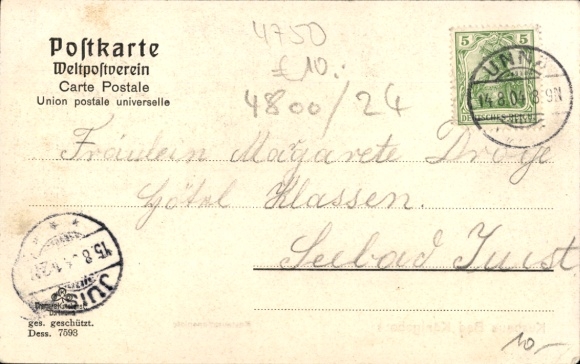 Postkarte
Weltpostverein
Carte Postale
Union postale universelle
4750
£ 10.-
4800/24
5
DEUTSCHES REICH
UNNA
14.8.04 8-9N
Fräulein Margarete Dröge
Hôtel Klassen.
Seebad Juist
15.8.04
JUIST
ges. geschützt.
Dess. 7593
10,-